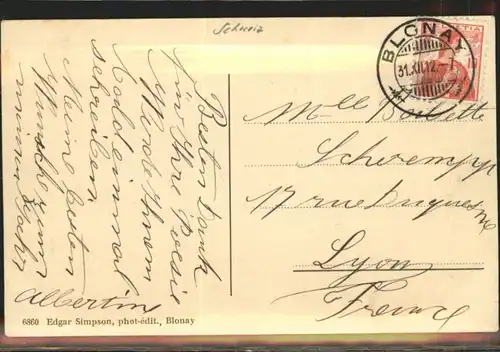 Schweiz
HELVETIA
BLONAY
31.XII.12.-1
Besten Dank
für Ihre Poesie
Werde Ihnen
bald einmal
schreiben.
Meine besten
Wünsche zum
neuen Jahr
Albertine
Mlle
Schrempp
17 rue Duquesne
Lyon
France
6860 Edgar Simpson, phot-édit., Blonay